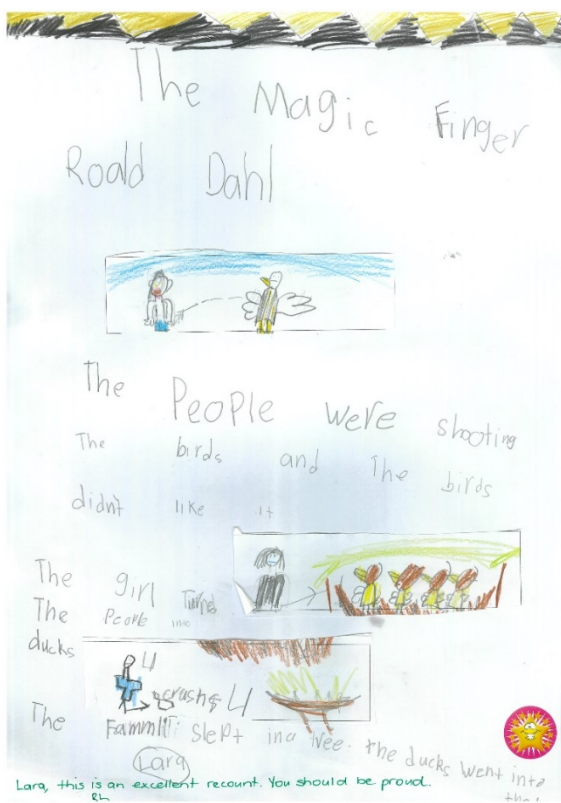 The Magic Finger
Roald Dahl
The People were shooting
The birds and The birds
didn't like it
The girl Turned
The People into
ducks
crash
The Fammliti slept in a tree. the ducks went into
Lara
Lara, this is an excellent recount. You should be proud.
Rh